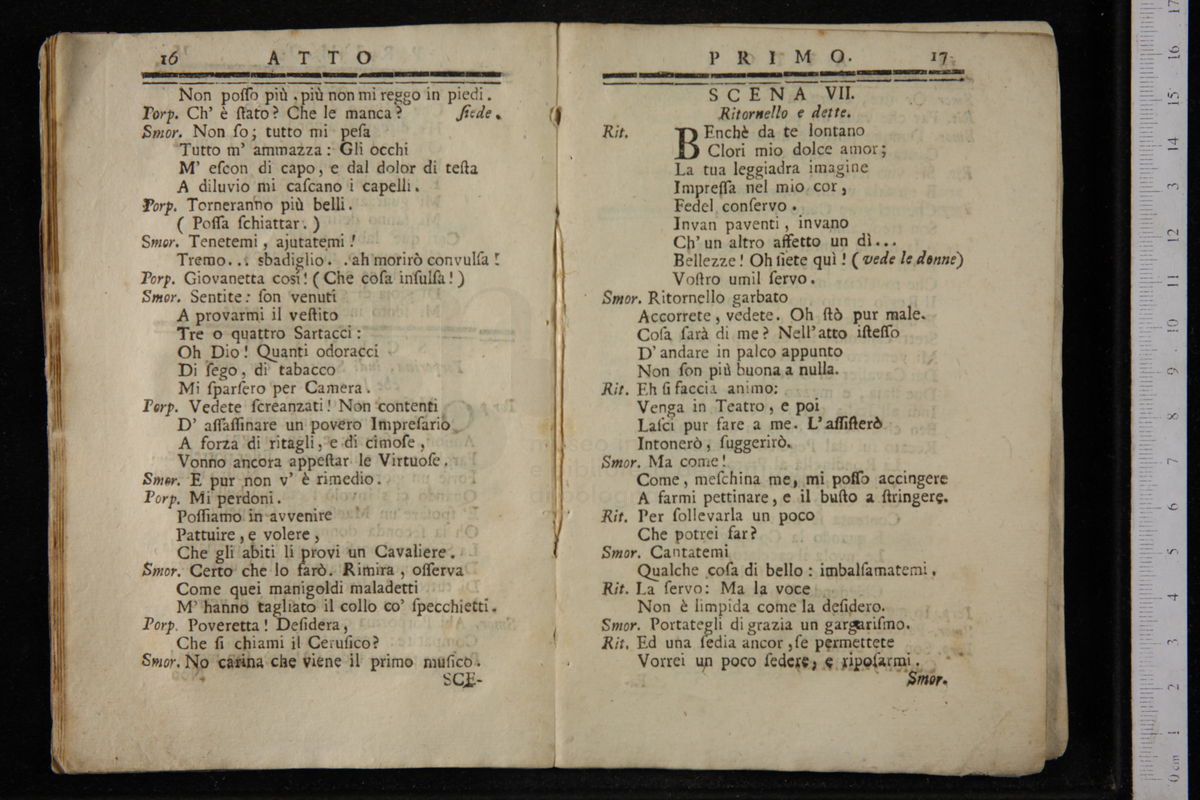 16 ATTO
Non poſſo più , più non mi reggo in piedi .
Porp. Ch' è ſtato ? Che le manca ? ſiede .
Smor. Non ſo ; tutto mi peſa
Tutto m' ammazza : Gli occhi
M' eſcon di capo , e dal dolor di teſta
A diluvio mi caſcano i capelli .
Porp. Torneranno più belli .
( Poſſa ſchiattar . )
Smor. Tenetemi , ajutatemi !
Tremo . . . sbadiglio . . ah morirò convulſa !
Porp. Giovanetta così ! ( Che coſa inſulſa ! )
Smor. Sentite : ſon venuti
A provarmi il veſtito
Tre o quattro Sartacci :
Oh Dio ! Quanti odoracci
Di ſego , di tabacco
Mi ſparſero per Camera .
Porp. Vedete ſcreanzati ! Non contenti
D' aſſaſſinare un povero Impreſario
A forza di ritagli , e di cimoſe ,
Vonno ancora appeſtar le Virtuoſe .
Smor. E pur non v' è rimedio .
Porp. Mi perdoni .
Poſſiamo in avvenire
Pattuire , e volere ,
Che gli abiti li provi un Cavaliere .
Smor. Certo che lo farò . Rimira , oſſerva
Come quei manigoldi maladetti
M' hanno tagliato il collo co' ſpecchietti .
Porp. Poveretta ! Deſidera ,
Che ſi chiami il Ceruſico ?
Smor. No carina che viene il primo muſico .
SCE-
PRIMO. 17
SCENA VII.
Ritornello e dette.
Rit. BEnchè da te lontano
Clori mio dolce amor ;
La tua leggiadra imagine
Impreſſa nel mio cor ,
Fedel conſervo .
Invan paventi , invano
Ch' un altro affetto un dì . . .
Bellezze ! Oh ſiete quì ! ( vede le donne )
Voſtro umil ſervo .
Smor. Ritornello garbato
Accorrete , vedete . Oh ſtò pur male .
Coſa ſarà di me ? Nell' atto iſteſſo
D' andare in palco appunto
Non ſon più buona a nulla .
Rit. Eh ſi faccia animo :
Venga in Teatro , e poi
Laſci pur fare a me . L' aſſiſterò
Intonerò , ſuggerirò .
Smor. Ma come !
Come , meſchina me , mi poſſo accingere
A farmi pettinare , e il buſto a ſtringere .
Rit. Per ſollevarla un poco
Che potrei far ?
Smor. Cantatemi
Qualche coſa di bello : imbalſamatemi .
Rit. La ſervo : Ma la voce
Non è limpida come la deſidero .
Smor. Portategli di grazia un gargariſmo .
Rit. Ed una ſedia ancor , ſe permettete
Vorrei un poco ſedere , e ripoſarmi .
Smor.
0 cm 1 2 3 4 5 6 7 8 9 10 11 12 13 14 15 16 17